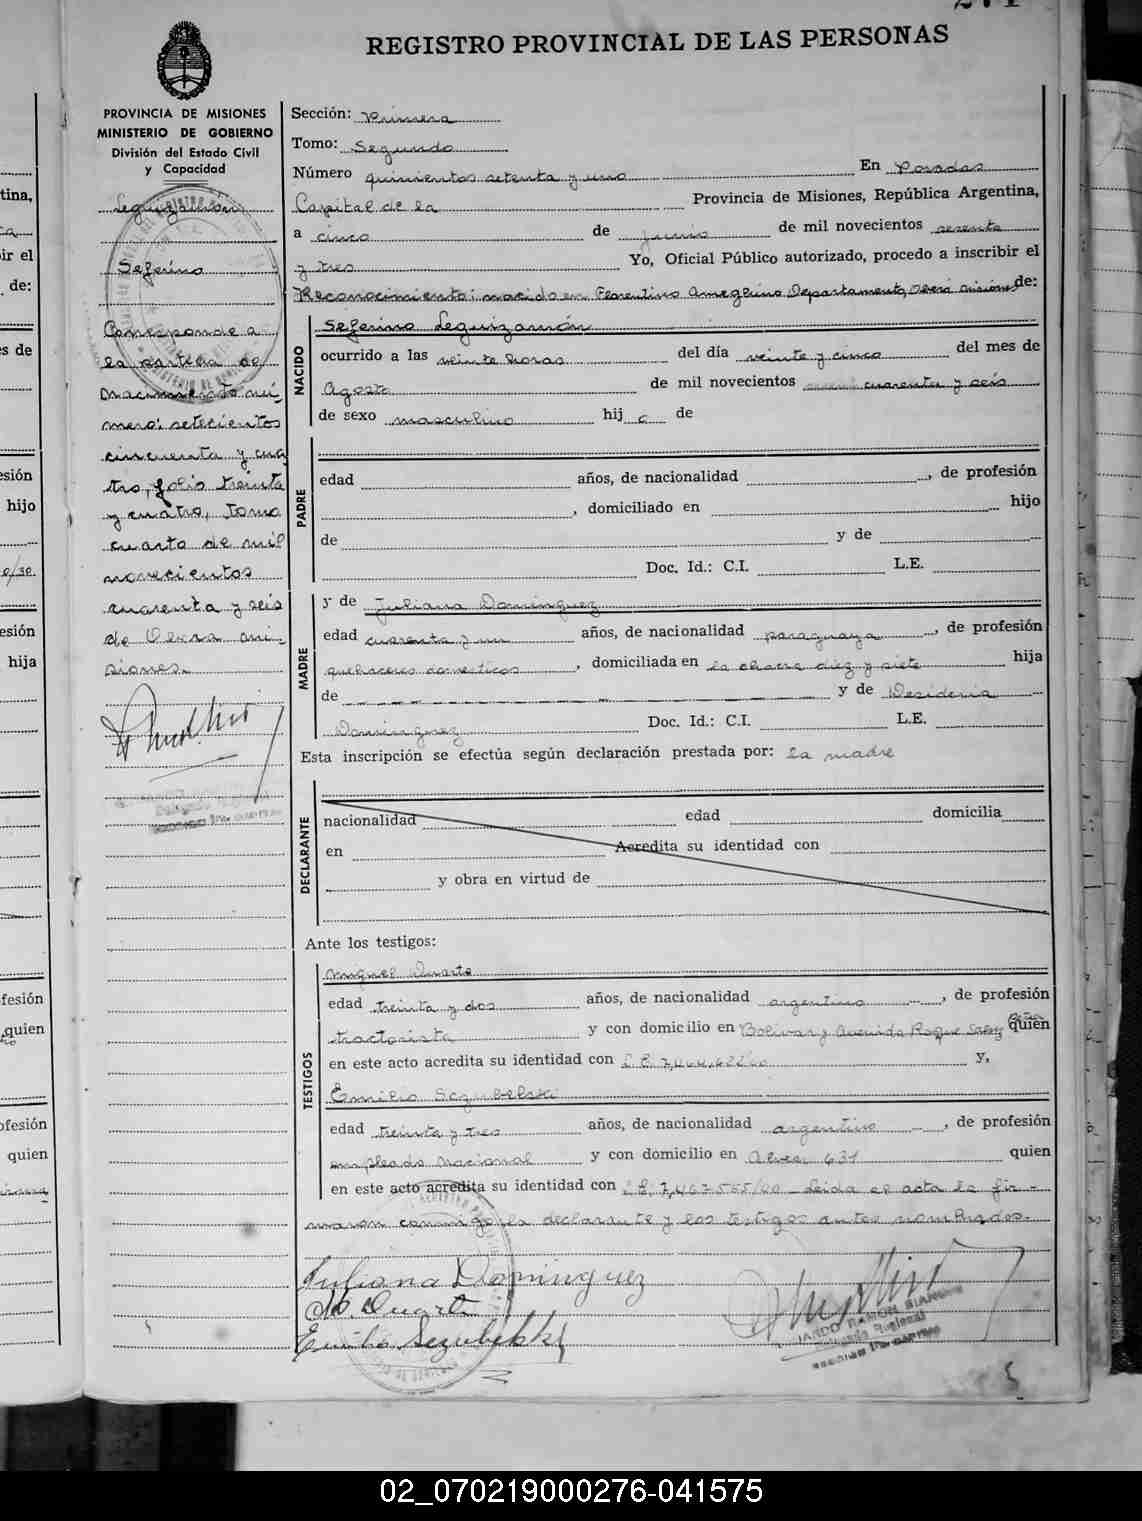 REGISTRO PROVINCIAL DE LAS PERSONAS
PROVINCIA DE MISIONES
MINISTERIO DE GOBIERNO
División del Estado Civil
y Capacidad
Leguizamón
Seferino
Corresponde a
la partida de
Nacimiento nú-
mero: setecientos
cincuenta y cua
tro, folio treinta
y cuatro, tomo
cuarto de mil
novecientos
cuarenta y seis
de Oberá Mi-
siones.
Sección: Primera
Tomo: Segundo
Número quinientos setenta y uno En Posadas
Capital de la Provincia de Misiones, República Argentina,
a cinco de junio de mil novecientos sesenta
y tres Yo, Oficial Público autorizado, procedo a inscribir el
Reconocimiento: nacido en Florentino Ameghino Departamento Misiones de:
NACIDO
Seferino Leguizamón
ocurrido a las veinte horas del día veinte y cinco del mes de
Agosto de mil novecientos cuarenta y seis
de sexo masculino hijo de
PADRE
edad años, de nacionalidad , de profesión
, domiciliado en hijo
de y de
Doc. Id.: C.I. L.E.
MADRE
y de Juliana Dominguez
edad cuarenta y un años, de nacionalidad paraguaya , de profesión
quehaceres domesticos , domiciliada en la chacra diez y siete hija
de y de Desideria
Dominguez Doc. Id.: C.I. L.E.
Esta inscripción se efectúa según declaración prestada por: la madre
DECLARANTE
nacionalidad edad domicilia
en Acredita su identidad con
y obra en virtud de
Ante los testigos:
TESTIGOS
Miguel Duarte
edad treinta y dos años, de nacionalidad argentino , de profesión
tractorista y con domicilio en Bolivar y Avenida Roque Saenz Peña quien
en este acto acredita su identidad con L.E. y,
Emilio Sczubelski
edad treinta y tres años, de nacionalidad argentino , de profesión
empleado nacional y con domicilio en Alvear 631 quien
en este acto acredita su identidad con L.E. Leida el acta la fir-
maron conmigo, la declarante y los testigos antes nombrados.
Juliana Dominguez
M. Duarte
Emilio Sczubelski
RAMON
02_070219000276-041575